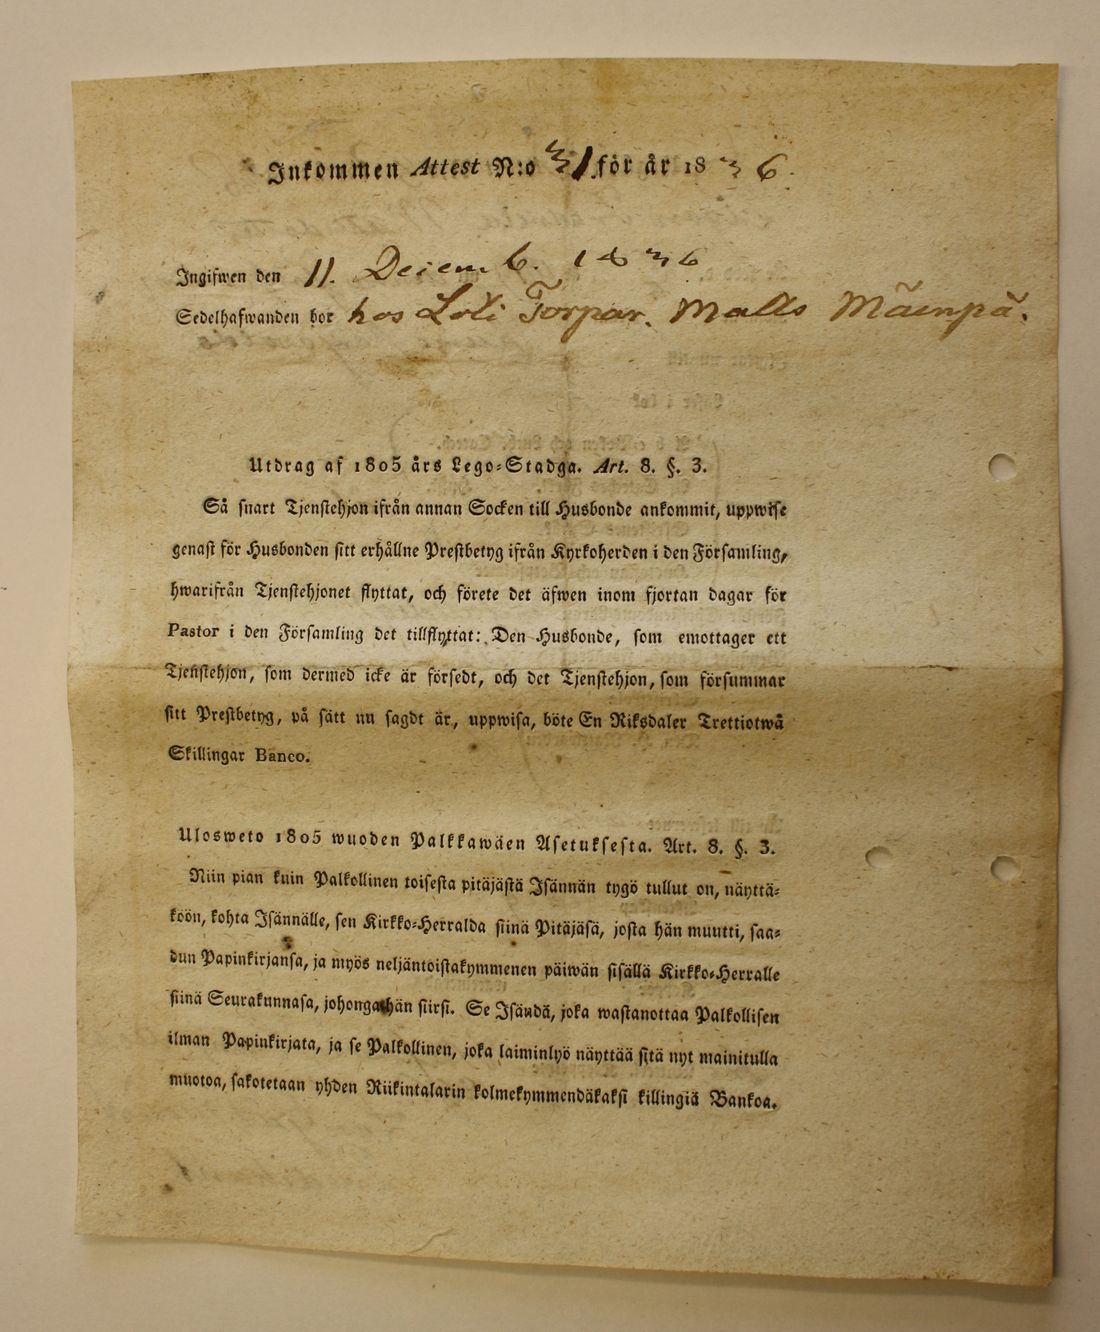 Inkommen Attest N:o 31 för år 1836.
Ingifwen den 11. Decemb. 1836
Sedelhafwanden bor hos Loli Torpar. Matts Mäenpä.
Utdrag af 1805 års Lego=Stadga. Art. 8. §. 3.
Så snart Tjenstehjon ifrån annan Socken till Husbonde ankommit, uppwise
genast för Husbonden sitt erhållne Prestbetyg ifrån Kyrkoherden i den Församling,
hwarifrån Tjenstehjonet flyttat, och förete det äfwen inom fjortan dagar för
Pastor i den Församling det tillflyttat: Den Husbonde, som emottager ett
Tjenstehjon, som dermed icke är försedt, och det Tjenstehjon, som försummar
sitt Prestbetyg, på sätt nu sagdt är, uppwisa, böte En Riksdaler Trettiotwå
Skillingar Banco.
Ulosweto 1805 wuoden Palkkawäen Asetuksesta. Art. 8. §. 3.
Niin pian kuin Palkollinen toisesta pitäjästä Isännän tygö tullut on, näyttä=
köön, kohta Isännälle, sen Kirkko=Herralda siinä Pitäjäsä, josta hän muutti, saa=
dun Papinkirjansa, ja myös neljäntoistakymmenen päiwän sisällä Kirkko=Herralle
siinä Seurakunnasa, johonga hän siirsi. Se Isändä, joka wastanottaa Palkollisen
ilman Papinkirjata, ja se Palkollinen, joka laiminlyö näyttää sitä nyt mainitulla
muotoa, sakotetaan yhden Riikintalarin kolmekymmendäkaksi killingiä Bankoa.